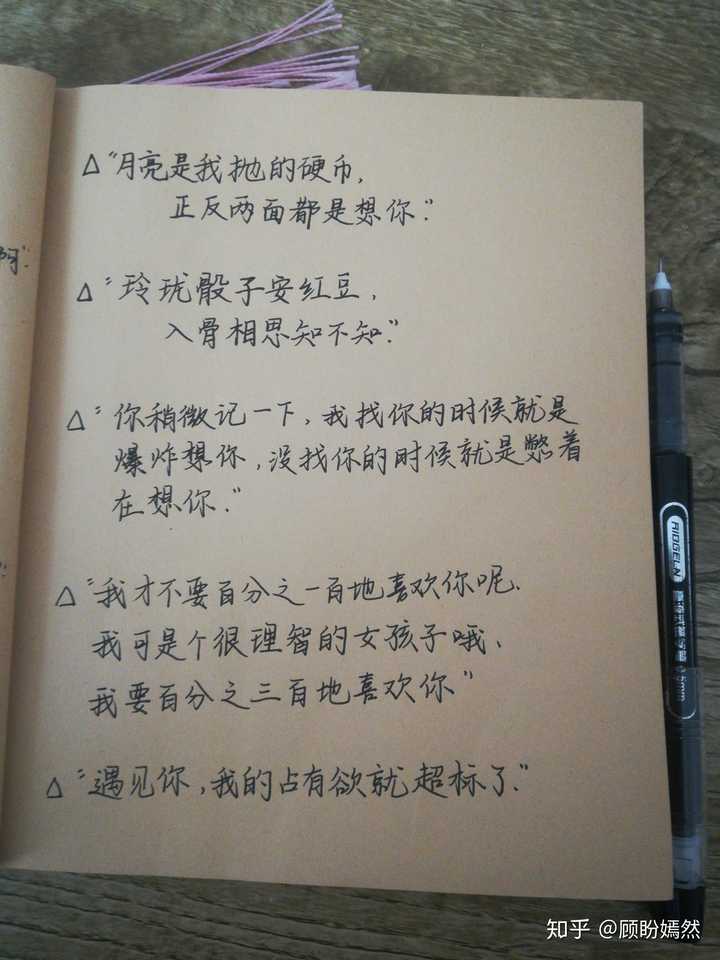 啊".
△"月亮是我抛的硬币,
正反两面都是想你."
△"玲珑骰子安红豆,
入骨相思知不知."
△"你稍微记一下,我找你的时候就是
爆炸想你,没找你的时候就是憋着
在想你."
△"我才不要百分之一百地喜欢你呢.
我可是个很理智的女孩子哦.
我要百分之三百地喜欢你"
△"遇见你,我的占有欲就超标了."
知乎 @顾盼嫣然